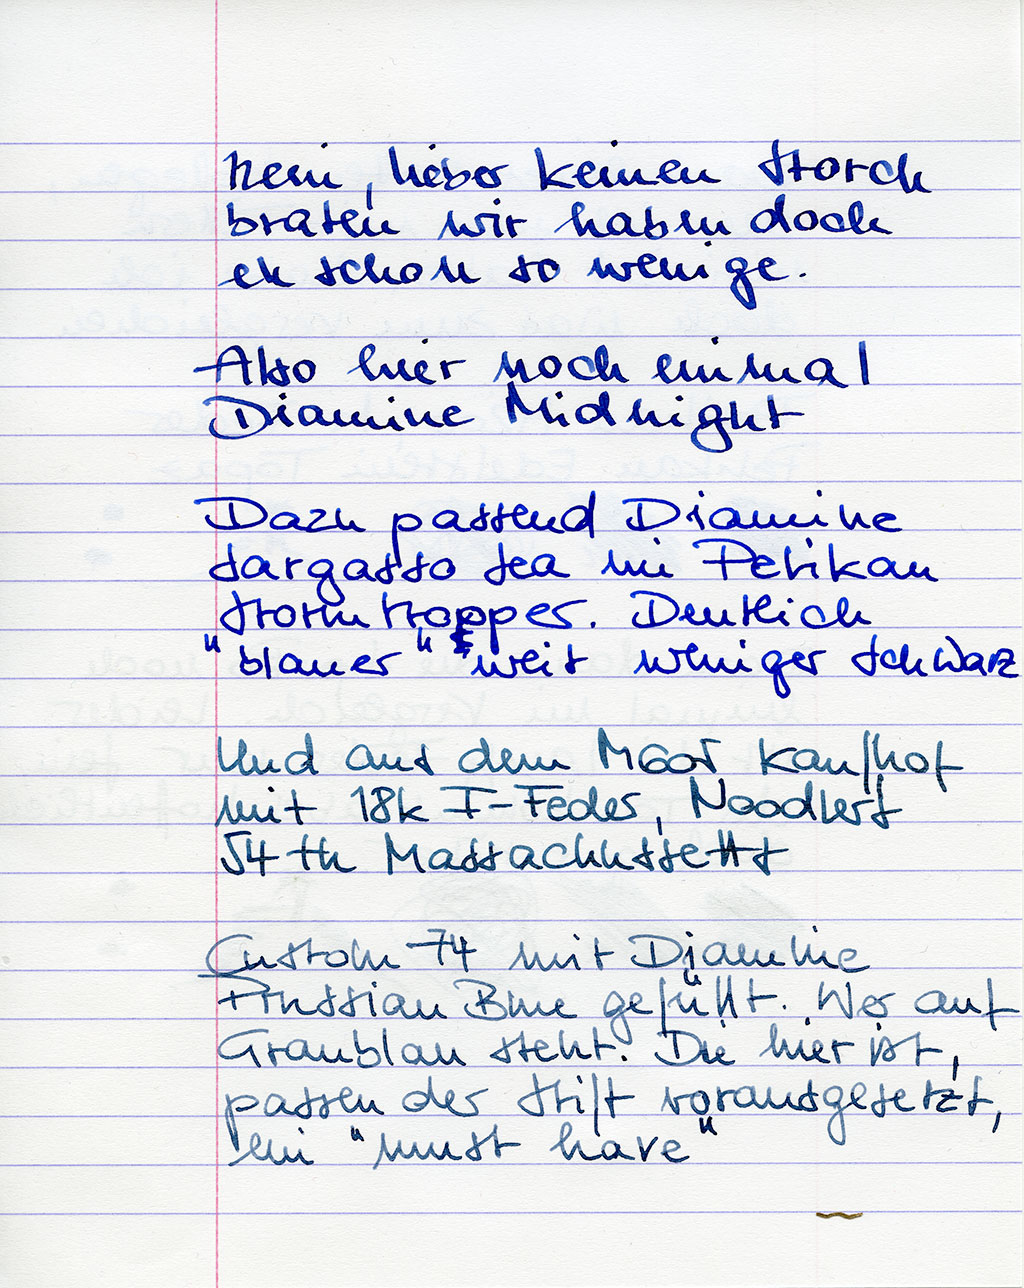 Nein, lieber keinen Storch
braten wir haben doch
eh schon so wenige.
Also hier noch einmal
Diamine Midnight
Dazu passend Diamine
Sargasso Sea im Pelikan
Stormtropper. Deutlich
"blauer" weit weniger schwarz
Und aus dem M605 Kaufhof
mit 18k F-Feder, Noodlers
54th Massachussetts
Custom 74 mit Diamine
Prussian Blue gefüllt. Wer auf
Graublau steht. Die hier ist,
passen der Stift vorausgesetzt,
ein "must have"